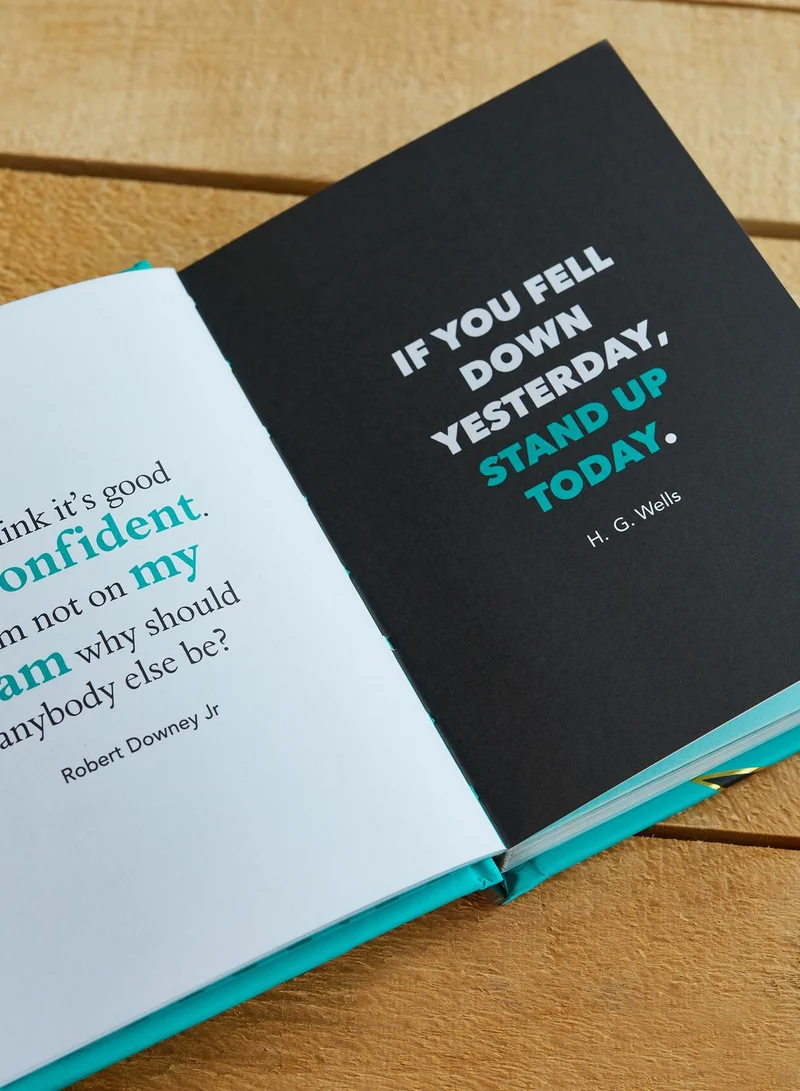 ink it's good
onfident.
m not on my
am why should
anybody else be?
Robert Downey Jr
IF YOU FELL
DOWN
YESTERDAY,
STAND UP
TODAY.
H. G. Wells